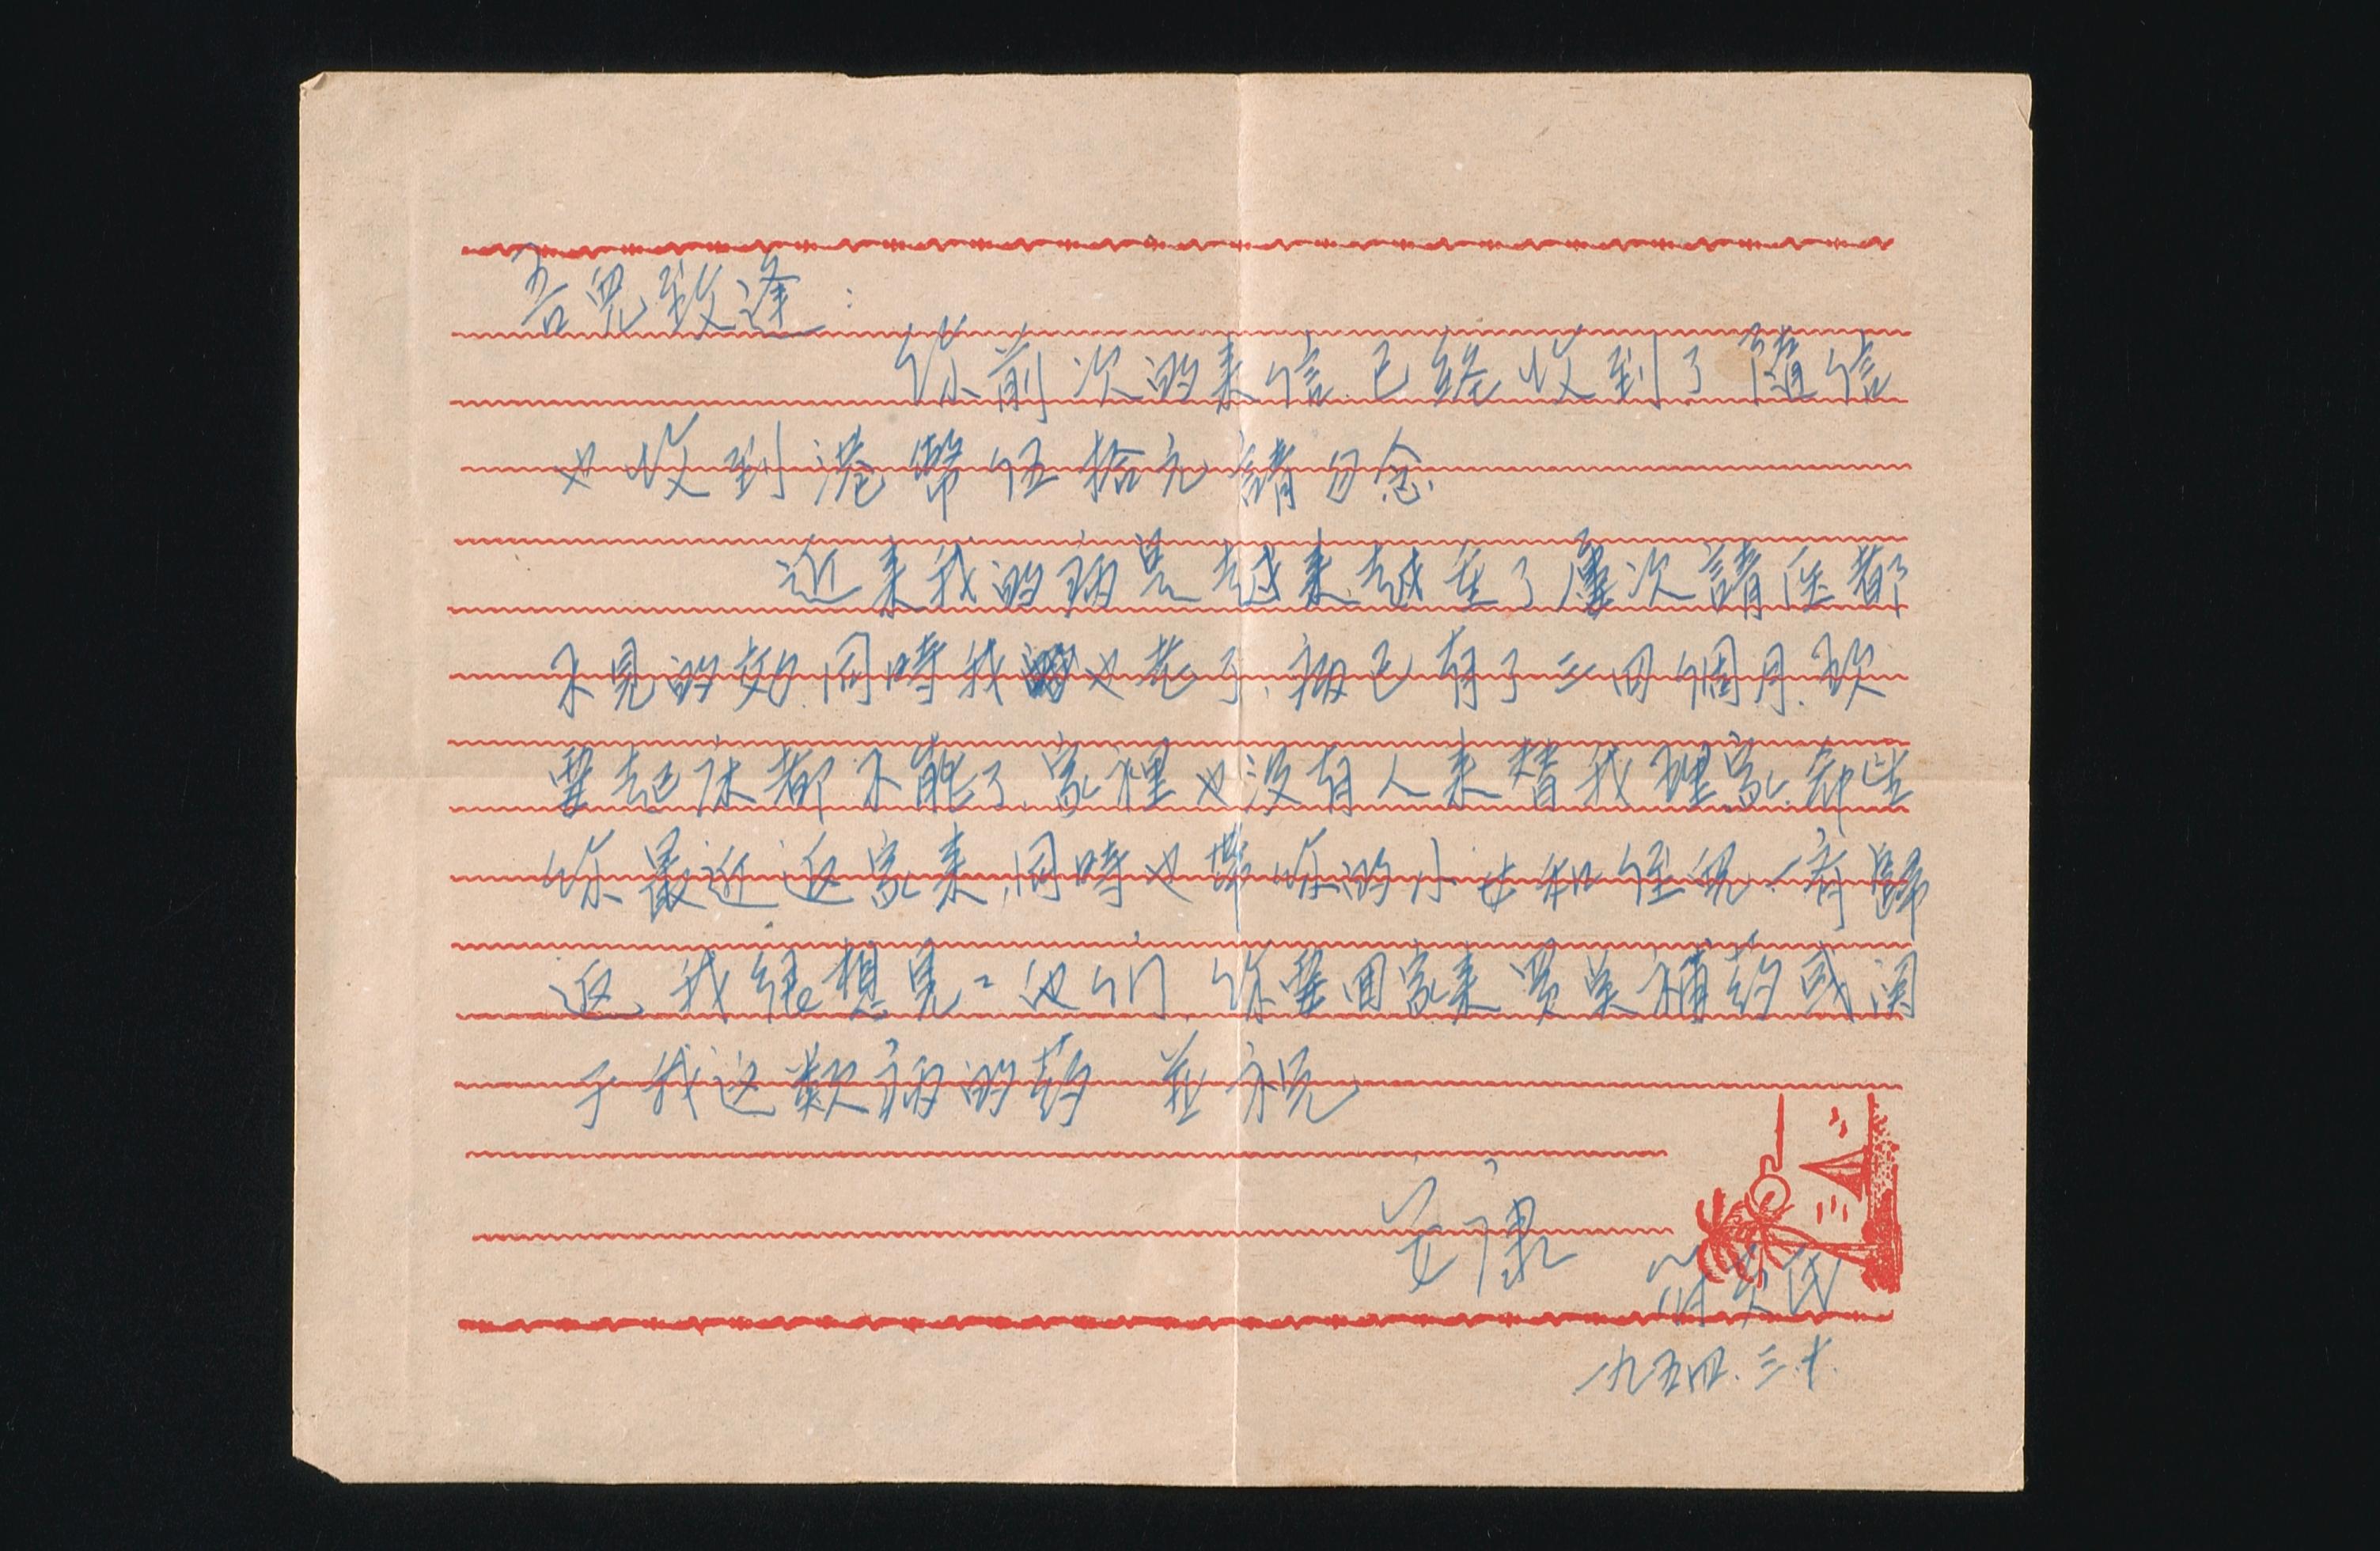 吾兒致逢：
你前次的来信已经收到了隨信
也收到港幣伍拾元請勿念
近来我的病是越来越重了屢次請医都
不見的効.同時我也老了.病已有了三四個月.欲
要起床都不能了.家裡也没有人来替我理家.希望
你最近返家来.同時也帶你的小女和侄児一齊歸
返.我很想見〻他們.你要回家来買吴補药或関
于我这款病的药 並祝
安康
氏
一九五四.三.十.